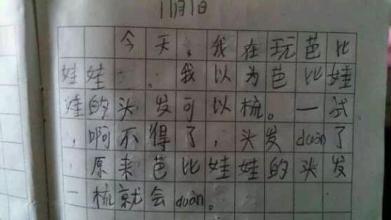 11月1日
今天，我在玩芭比
娃娃。我以为芭比娃
娃的头发可以梳。一试
，啊不得了，头发duàn了
，原来芭比娃娃的头发
一梳就会duàn。